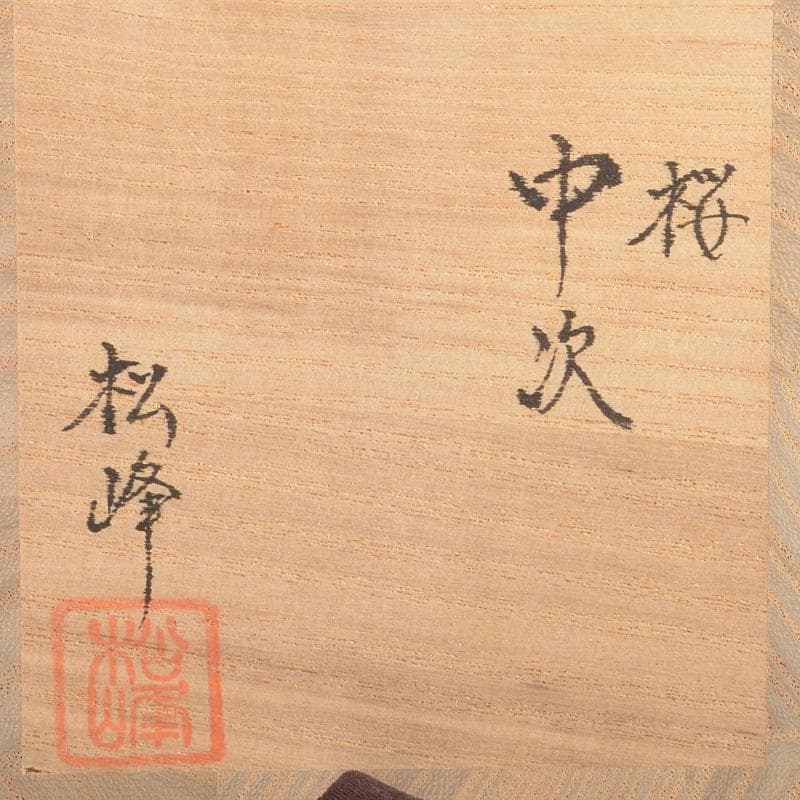 桜
中次
松峰
松峰